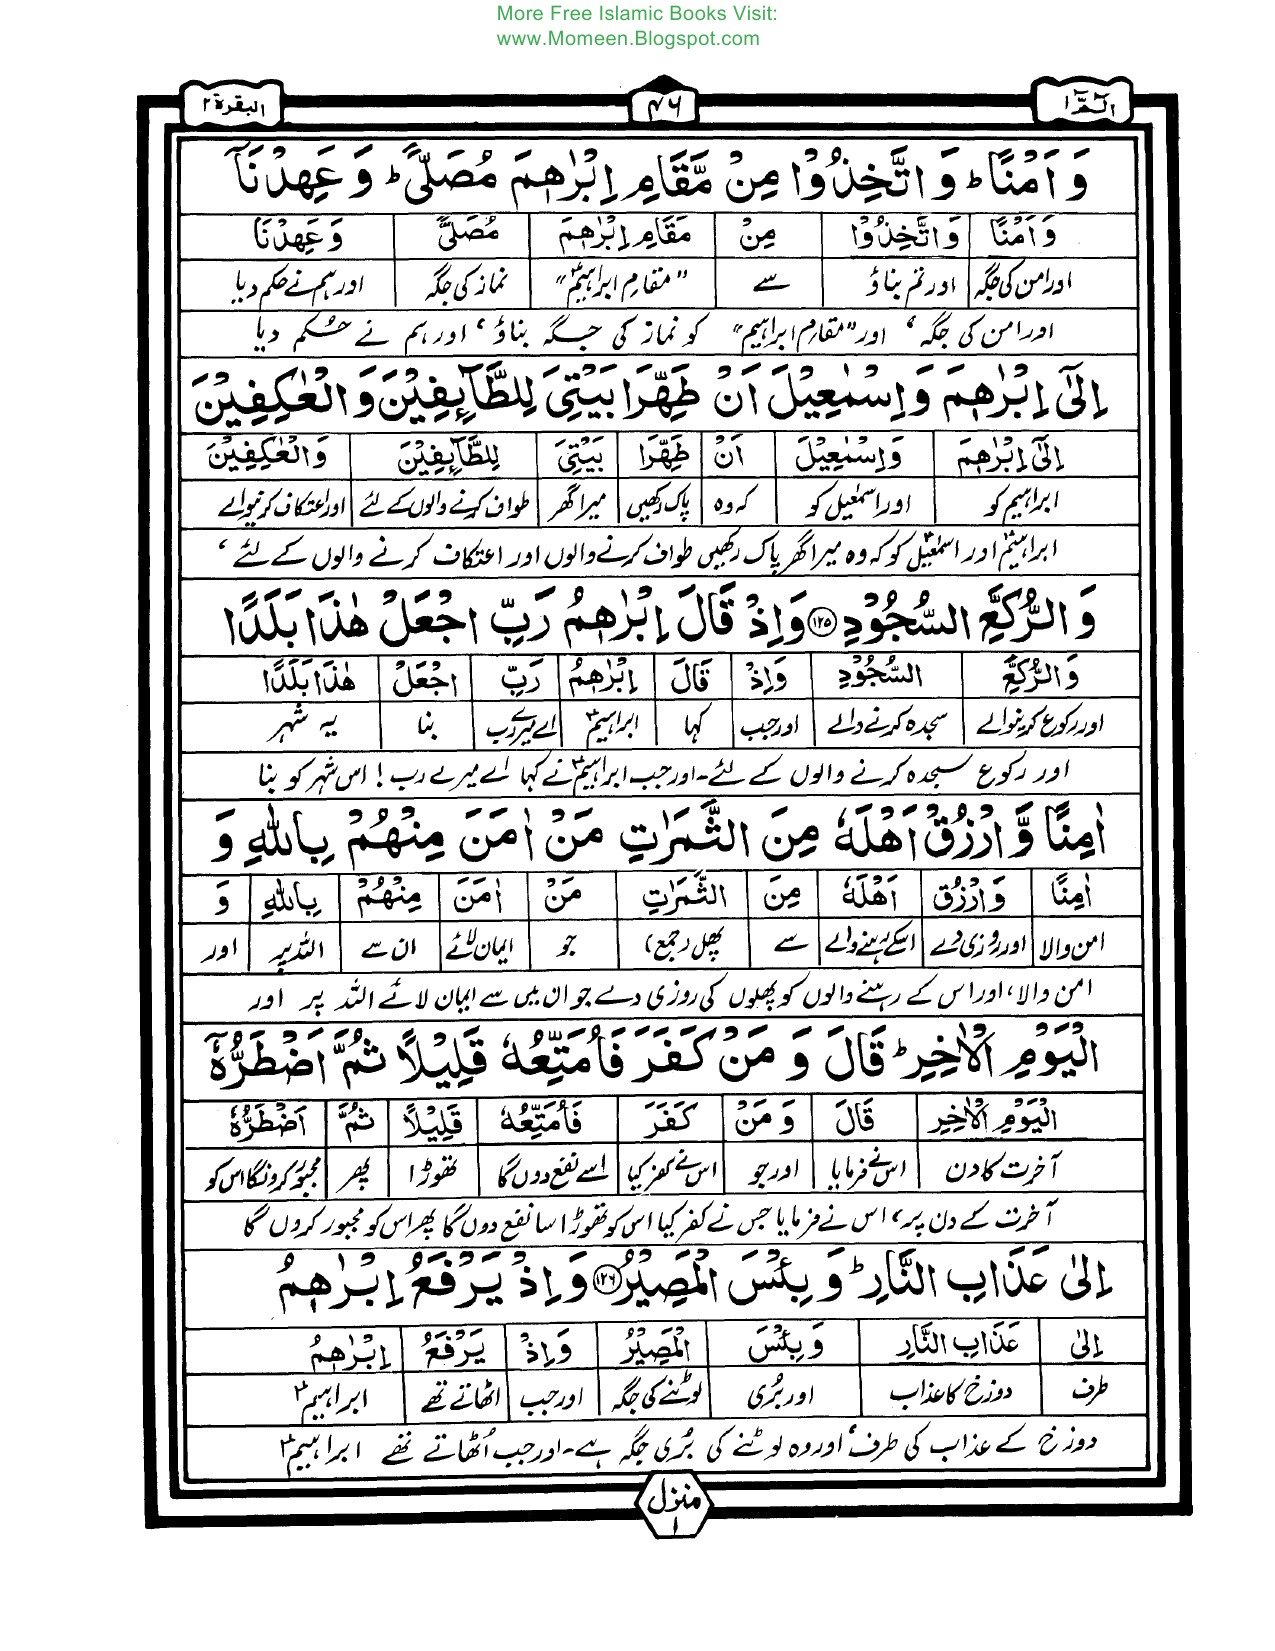 More Free Islamic Books Visit:
www.Momeen.Blogspot.com
الٓمّٓ ١ ۴۶ البقرة ٢
وَ اَمْنًا ؕ وَ اتَّخِذُوْا مِنْ مَّقَامِ اِبْرٰهٖمَ مُصَلًّى ؕ وَ عَهِدْنَاۤ
وَ اَمْنًا وَ اتَّخِذُوْا مِنْ مَقَامِ اِبْرٰهٖمَ مُصَلًّى وَ عَهِدْنَا
اور امن کی جگہ اور تم بناؤ سے "مقام ابراہیمؑ" نماز کی جگہ اور ہم نے حکم دیا
اور امن کی جگہ، اور "مقام ابراہیمؑ" کو نماز کی جگہ بناؤ، اور ہم نے حکم دیا
اِلٰۤى اِبْرٰهٖمَ وَ اِسْمٰعِيْلَ اَنْ طَهِّرَا بَيْتِىَ لِلطَّآىِٕفِيْنَ وَ الْعٰكِفِيْنَ
اِلٰٓى اِبْرٰهٖمَ وَ اِسْمٰعِيْلَ اَنْ طَهِّرَا بَيْتِىَ لِلطَّآىِٕفِيْنَ وَ الْعٰكِفِيْنَ
ابراہیم کو اور اسمٰعیل کو کہ وہ پاک رکھیں میرا گھر طواف کرنے والوں کے لئے اور اعتکاف کرنیوالے
ابراہیمؑ اور اسمٰعیلؑ کو کہ وہ میرا گھر پاک رکھیں طواف کرنے والوں اور اعتکاف کرنے والوں کے لئے،
وَ الرُّكَّعِ السُّجُوْدِ ١٢٥ وَ اِذْ قَالَ اِبْرٰهٖمُ رَبِّ اجْعَلْ هٰذَا بَلَدًا
وَ الرُّكَّعِ السُّجُوْدِ وَ اِذْ قَالَ اِبْرٰهٖمُ رَبِّ اجْعَلْ هٰذَا بَلَدًا
اور رکوع کرنیوالے سجدہ کرنے والے اور جب کہا ابراہیمؑ اے میرے رب بنا یہ شہر
اور رکوع سجدہ کرنے والوں کے لئے۔ اور جب ابراہیمؑ نے کہا اے میرے رب! اس شہر کو بنا
اٰمِنًا وَّ ارْزُقْ اَهْلَهٗ مِنَ الثَّمَرٰتِ مَنْ اٰمَنَ مِنْهُمْ بِاللّٰهِ وَ
اٰمِنًا وَ ارْزُقْ اَهْلَهٗ مِنَ الثَّمَرٰتِ مَنْ اٰمَنَ مِنْهُمْ بِاللّٰهِ وَ
امن والا اور روزی دے اسکے رہنے والے سے پھل (جمع) جو ایمان لائے ان سے اللہ پر اور
امن والا، اور اس کے رہنے والوں کو پھلوں کی روزی دے جو ان میں سے ایمان لائے اللہ پر اور
الْيَوْمِ الْاٰخِرِ ؕ قَالَ وَ مَنْ كَفَرَ فَاُمَتِّعُهٗ قَلِيْلًا ثُمَّ اَضْطَرُّهٗۤ
الْيَوْمِ الْاٰخِرِ قَالَ وَ مَنْ كَفَرَ فَاُمَتِّعُهٗ قَلِيْلًا ثُمَّ اَضْطَرُّهٗ
آخرت کا دن اس نے فرمایا اور جو اس نے کفر کیا اسے نفع دوں گا تھوڑا پھر مجبور کرونگا اس کو
آخرت کے دن پر، اس نے فرمایا جس نے کفر کیا اس کو تھوڑا سا نفع دوں گا پھر اس کو مجبور کروں گا
اِلٰى عَذَابِ النَّارِ ؕ وَ بِئْسَ الْمَصِيْرُ ١٢٦ وَ اِذْ يَرْفَعُ اِبْرٰهٖمُ
اِلٰى عَذَابِ النَّارِ وَ بِئْسَ الْمَصِيْرُ وَ اِذْ يَرْفَعُ اِبْرٰهٖمُ
طرف دوزخ کا عذاب اور بُری لوٹنے کی جگہ اور جب اٹھاتے تھے ابراہیمؑ
دوزخ کے عذاب کی طرف، اور وہ لوٹنے کی بُری جگہ ہے۔ اور جب اُٹھاتے تھے ابراہیمؑ
منزل ١